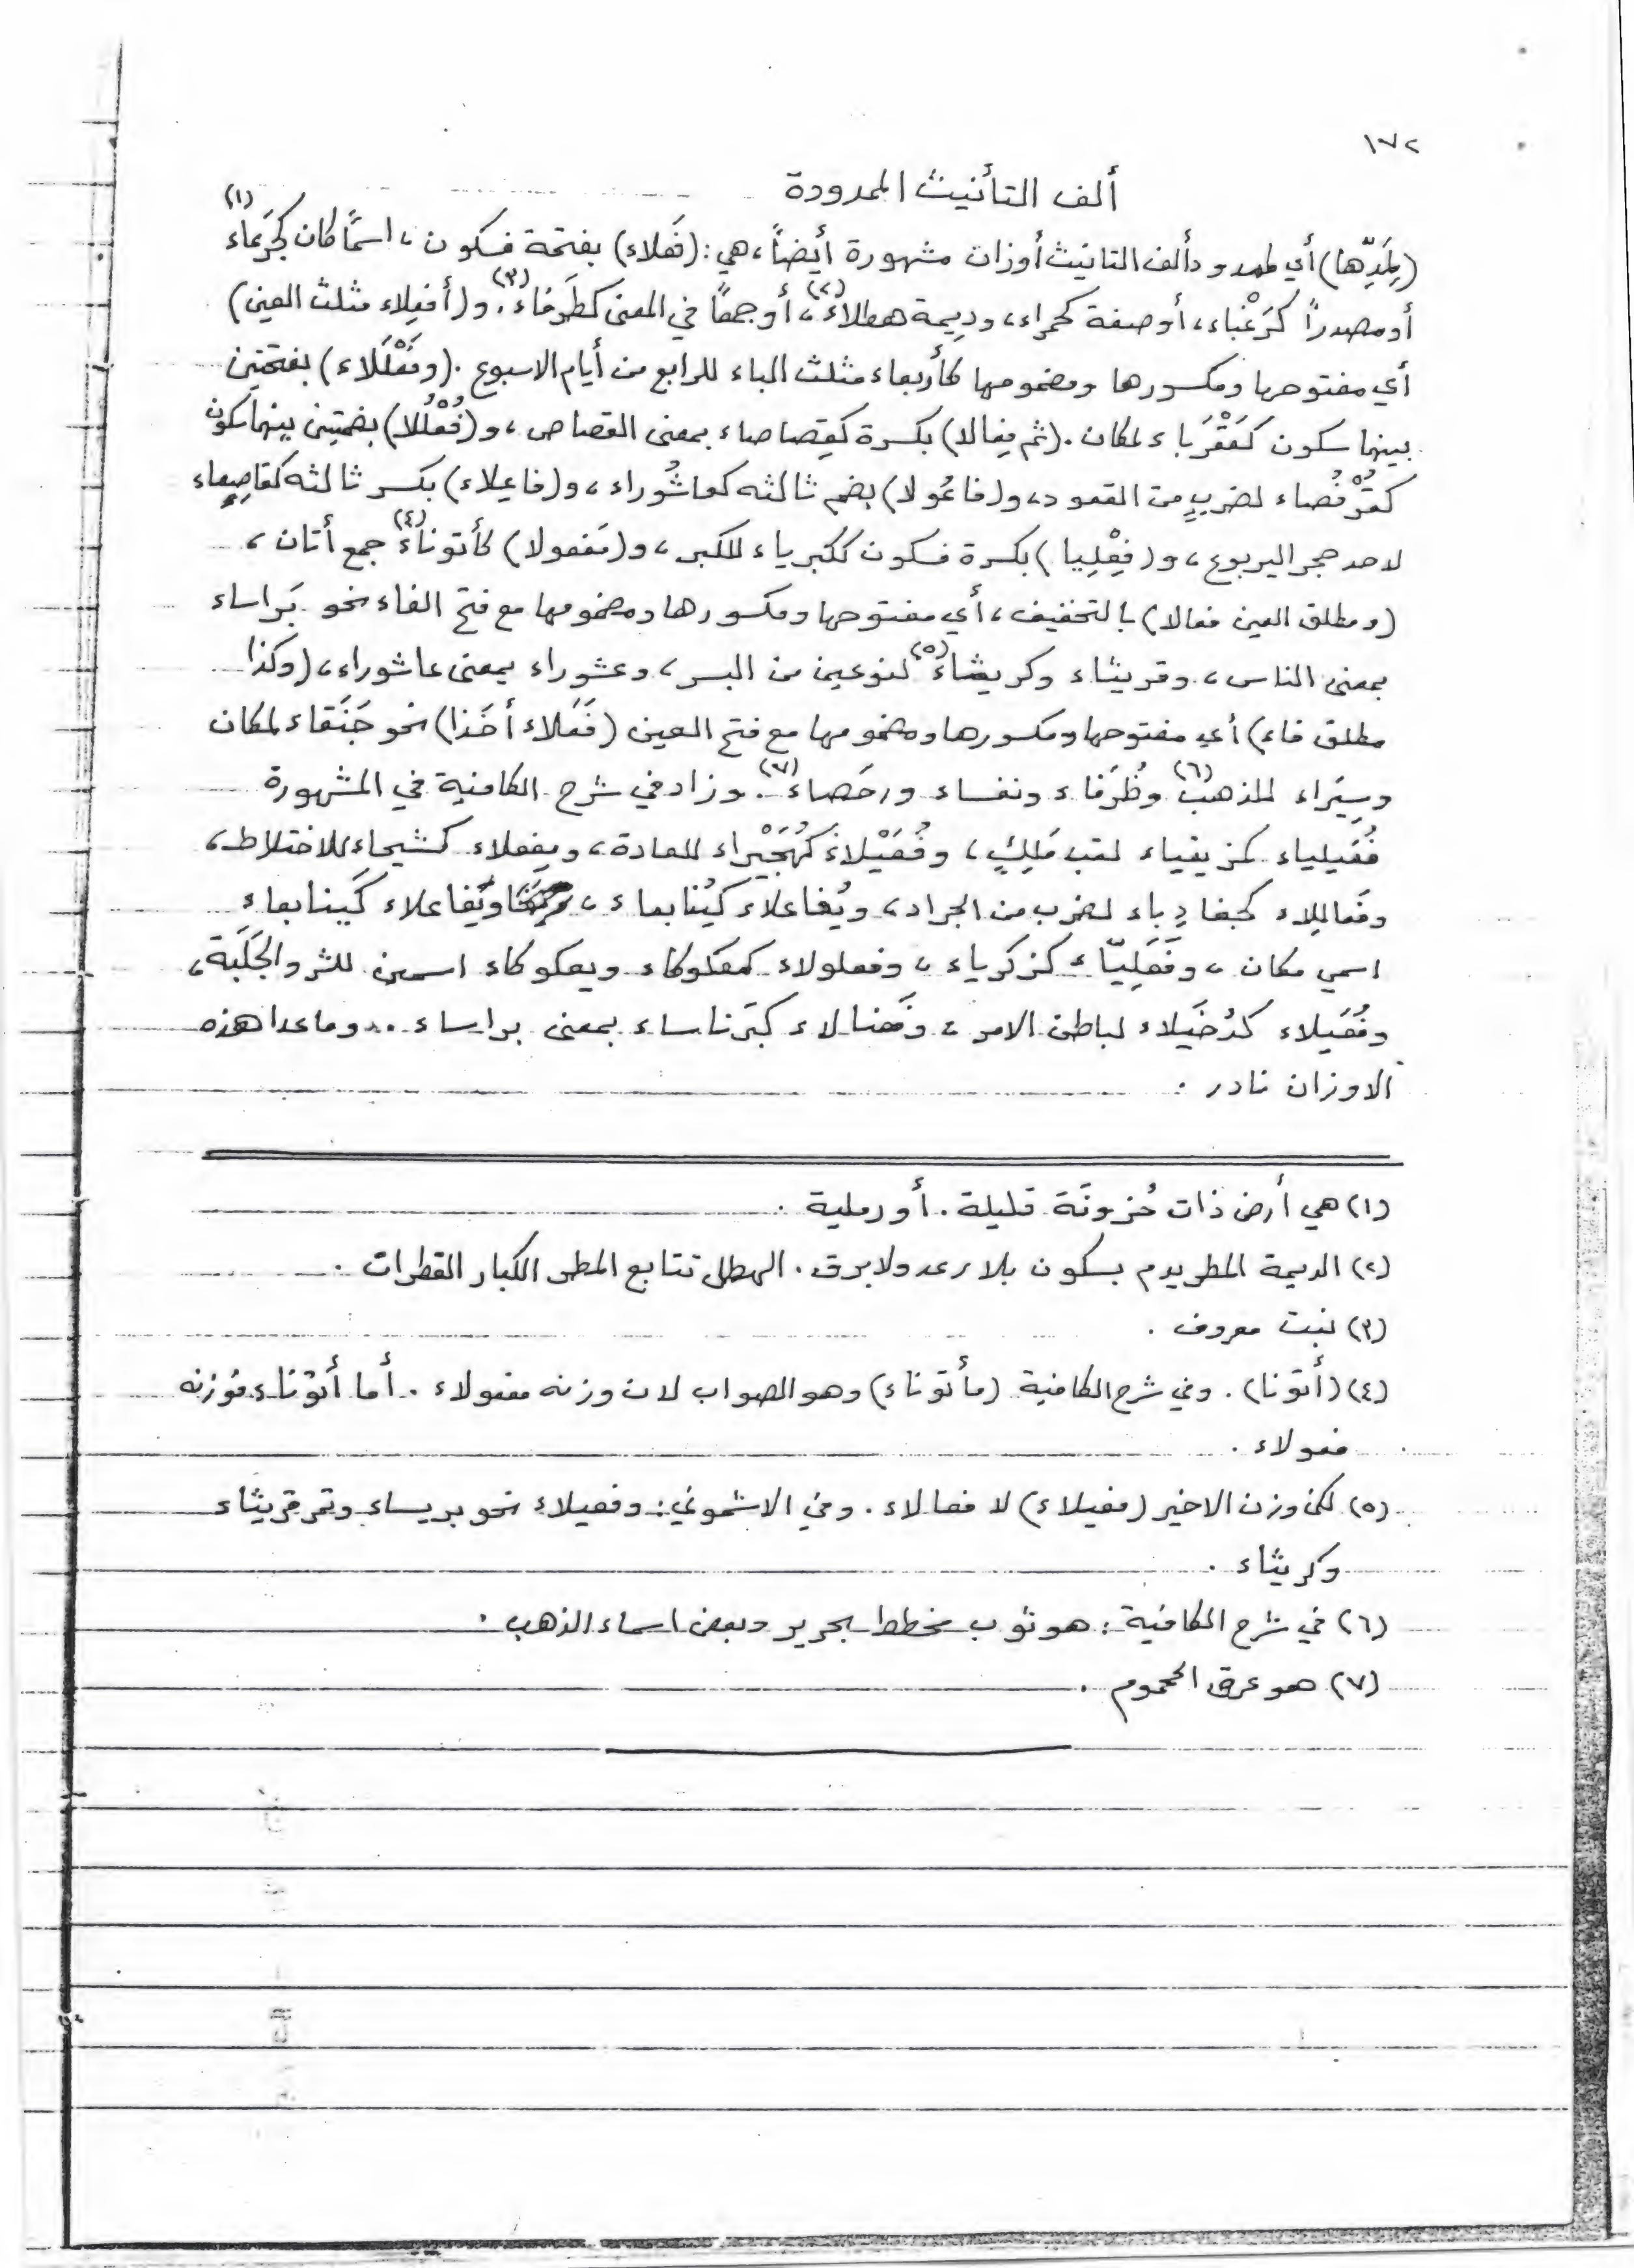 ١٧٢
ألف التأنيث الممدودة
(لِمَدِّها) أي لممدود ألف التانيث أوزان مشهورة أيضاً، هي: (فَعْلاء) بفتحة فسكون، اسمًا كان كجَرْعاء (١)
أو مصدراً كرَغْباء، أو صفة كحمراء، ودِيمة هطلاء (٢)، أو جمعًا في المعنى كطَرفاء (٣). و(أفعِلاء مثلث العين)
أي مفتوحها ومكسورها ومضمومها كأربعاء مثلث الباء للرابع من أيام الاسبوع. (وفَعْلَلاء) بفتحتين
بينهما سكون كعَقْرَباء لمكان. (ثم فِعالا) بكسرة كقِصاصاء بمعنى القصاص، و(فُعْلُلا) بضمتين بينهما سكون
كقُرْفُصاء لضربٍ من القعود، و(فاعُولا) بضم ثالثه كعاشُوراء، و(فاعِلاء) بكسر ثالثه كقاصِعاء
لاحد حجر اليربوع، و(فِعْلِيا) بكسرة فسكون ككبرياء للكبر، و(مَفعولا) كأتوناء (٤) جمع أتان،
(ومطلق العين فعالا) بالتخفيف، أي مفتوحها ومكسورها ومضمومها مع فتح الفاء نحو بَراساء
بمعنى الناس، وقريثاء وكريثاء (٥) لنوعين من البسر، وعشوراء بمعنى عاشوراء، (وكذا
مطلق فاء) أي مفتوحها ومكسورها ومضمومها مع فتح العين (فَعَلاء أخذا) نحو جَنَقاء لمكان
وسِيَراء للذهب (٦) وظُرَفاء ونفساء ورحَصاء (٧). وزاد في شرح الكافية في المشهورة
فُعَيلياء كمزيقياء لقب مَلِكٍ، وفُعَيْلاءَ كهُجَيْراء للعادة، ويفعلاء كشيحاء للاختلاط،
وفَعاللِاء كجفادِباء لضرب من الجراد، ويُفاعلاء كيُنابعاء، ويَفاعلاء كَينابعاء
اسمي مكان، وفَعَلِيّاء كزكرياء، وفعلولاء كمعكوكاء وبعكوكاء اسمين للشر والجَلَبَة،
وفُعَيلاء كدُخَيلاء لباطن الامر، وفَعنالاء كبَرناساء بمعنى براساء.. وما عدا هذه
الاوزان نادر.
(١) هي أرض ذات حُزونَة قليلة. أو رملية.
(٢) الديمة المطر يدم بسكون بلا رعد ولا برق. الهطل تتابع المطر الكبار القطرات.
(٣) نبت معروف.
(٤) (أتونا). وفي شرح الكافية (مأتوناء) وهو الصواب لان وزنه مفعولاء. أما أتوناء فوزنه
فعولاء.
(٥) لكن وزن الاخير (فعيلاء) لا فعالاء. وفي الاشموني: وفعيلاء نحو بريساء وتمر قريثاء
وكريثاء.
(٦) في شرح الكافية: هو ثوب مخطط بحرير وبعض اسماء الذهب.
(٧) هو عرق المحموم.